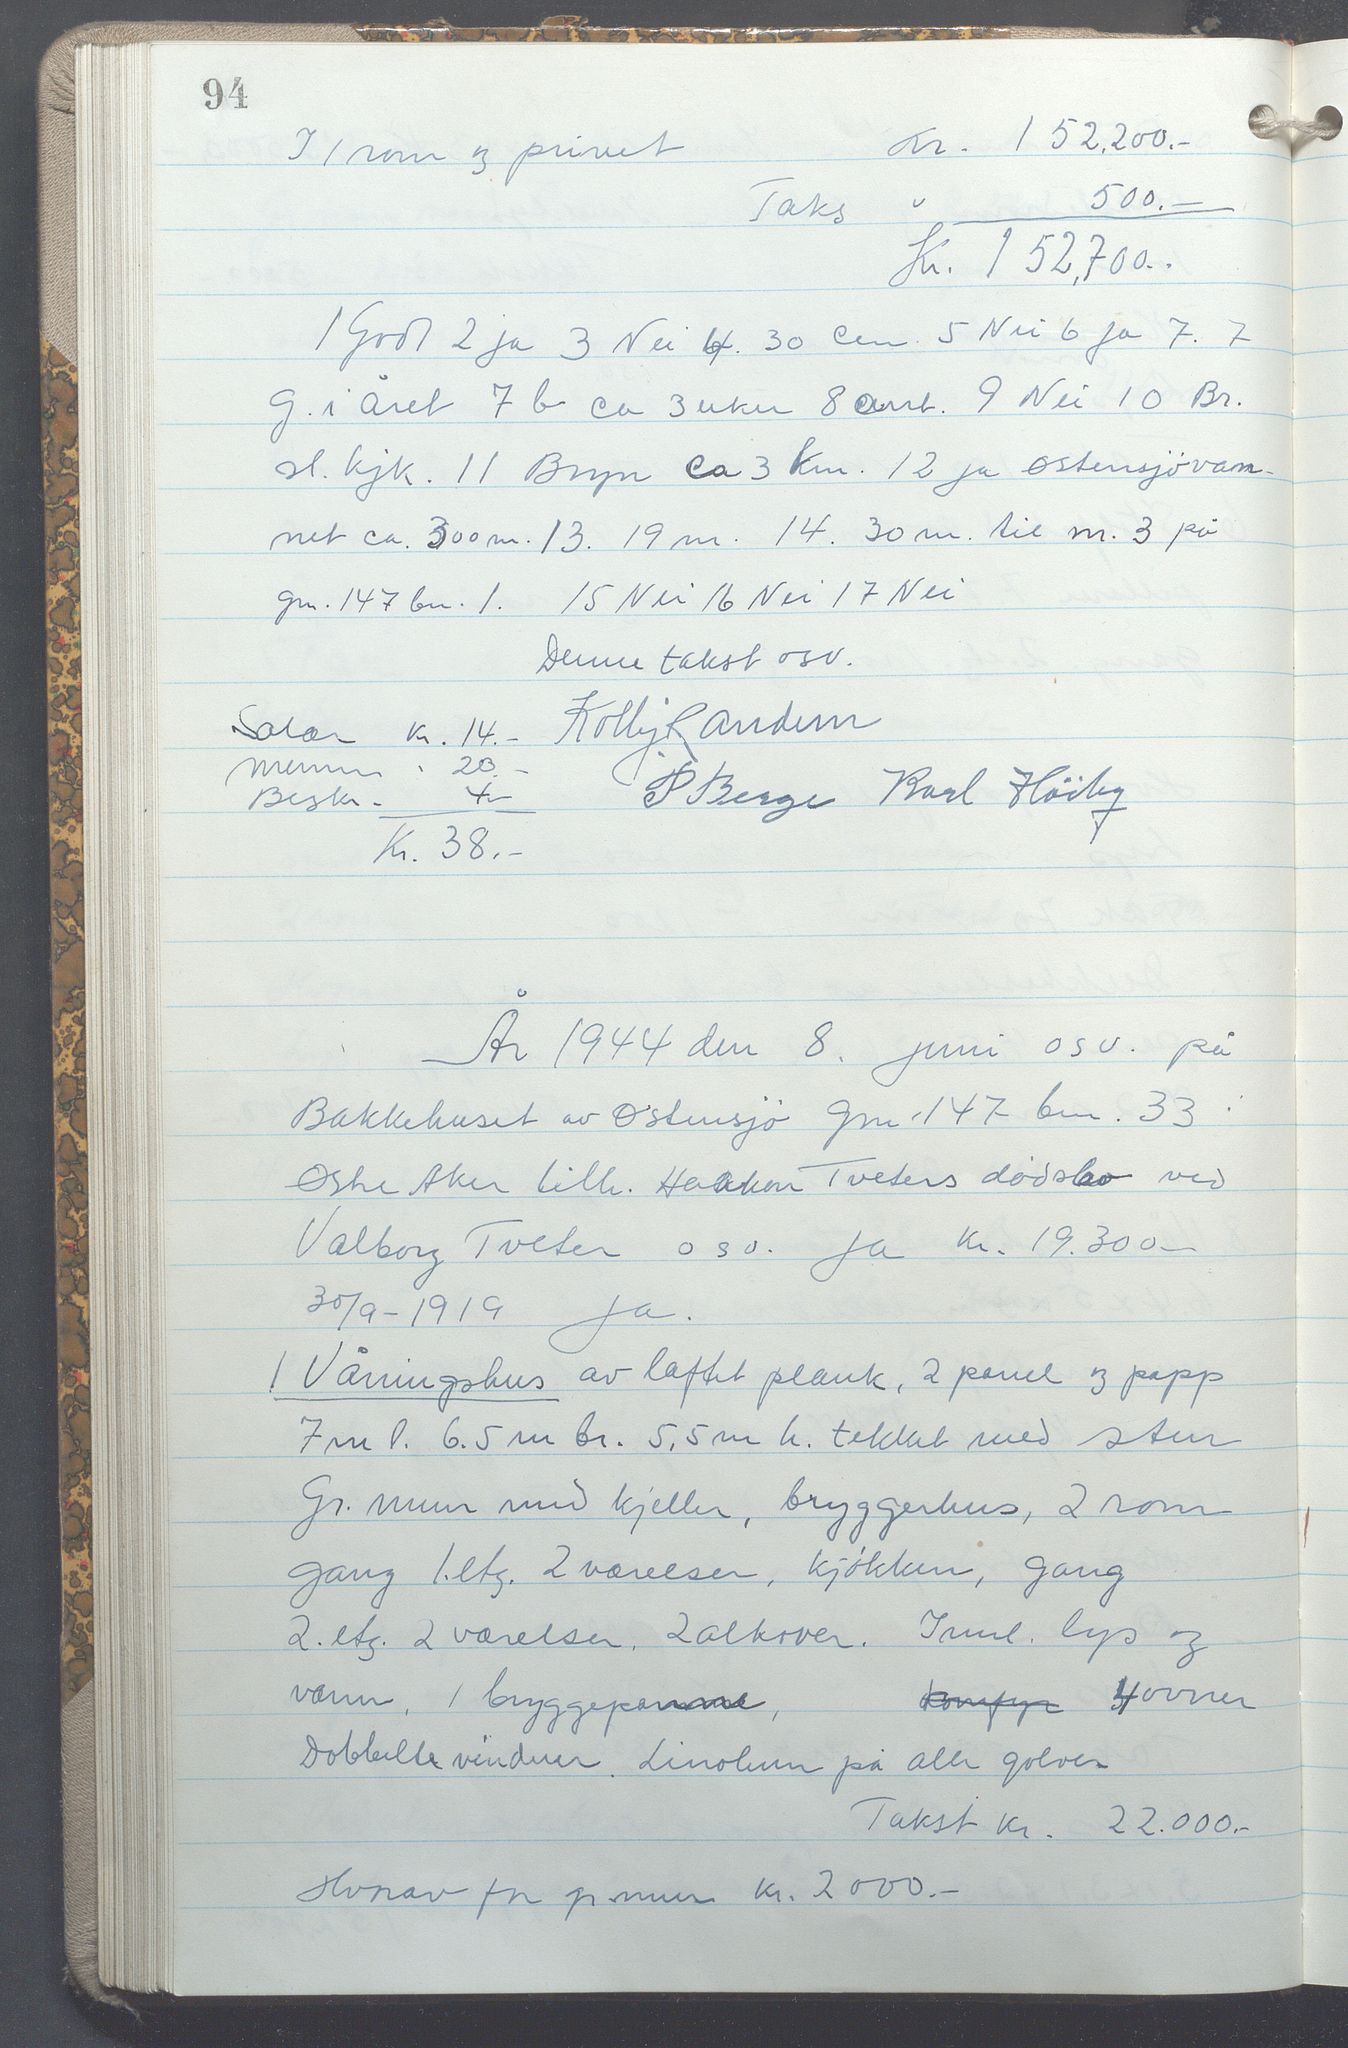 94
I 1 rom og privet Kr. 152,200.-
Taks " 500.-
Kr. 152,700.-
1 Godt 2 ja 3 Nei 4. 30 cm. 5 Nei 6 ja 7. 7
G. i året 7 b ca 3 uker 8 ant. 9 Nei 10 Br.
sl. kjk. 11 Bryn ca 3 km. 12 ja Østensjøvan-
net ca. 300 m. 13. 19 m. 14. 30 m. til nr. 3 på
gnr. 147 bnr. 1. 15 Nei 16 Nei 17 Nei
Denne takst osv.
Salær Kr. 14.- Kolbj. Randem
Menn " 20.-
Beskr. 4.- P Berge Karl Höiby
Kr. 38.-
År 1944 den 8. juni osv. på
Bakkehuset av Østensjö gnr. 147 bnr. 33 i
Østre Aker tilh. Haakon Tveters dödsbo ved
Valborg Tveter osv. ja kr. 19.300-
30/9-1919 ja.
1 Våningshus av laftet plank, 2 panel og papp
7 m l. 6.5 m br. 5,5 m h. tekket med sten
Gr. mur med kjeller, bryggerhus, 2 rom
gang 1. etg. 2 værelser, kjökken, gang
2. etg. 2 værelser, 2 alkover. Innl. lys og
vann, 1 bryggepanne, komfyr 4 ovner
Dobbelte vinduer. Linoleum på alle golver
Takst kr. 22.000.-
Hvorav for gr. mur kr. 2000.-